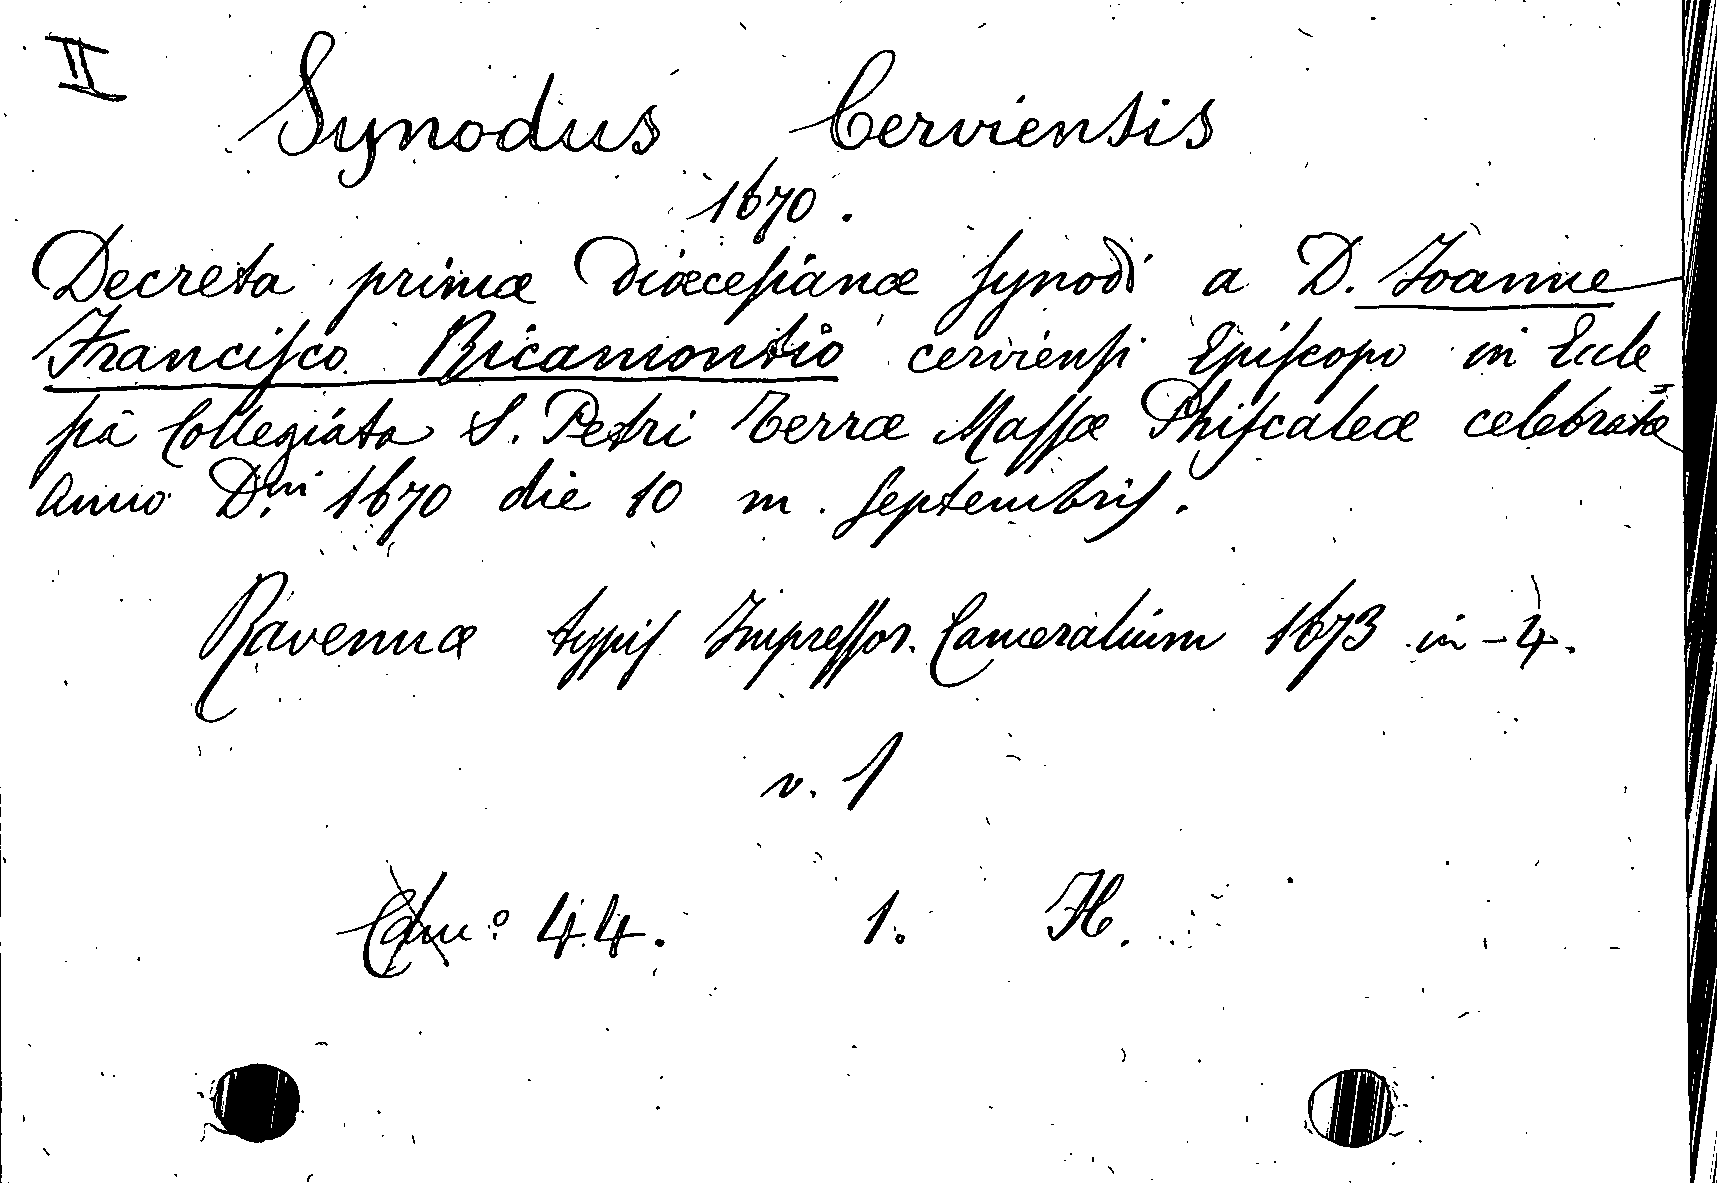 II
Synodus Cerviensis
1670.
Decreta primæ Diœceſianæ ſynodi a D. Joanne
Franciſco Ricamontio cervienſi Epiſcopo in Eccle
ſiâ Collegiata S. Petri Terræ Maſſæ Phiſcaleæ celebratæ
anno D.ni 1670 die 10 m. ſeptembriſ.
Ravennæ typiſ Impreſſor. Cameralium 1673 in-4.
v. 1
44. 1. H.